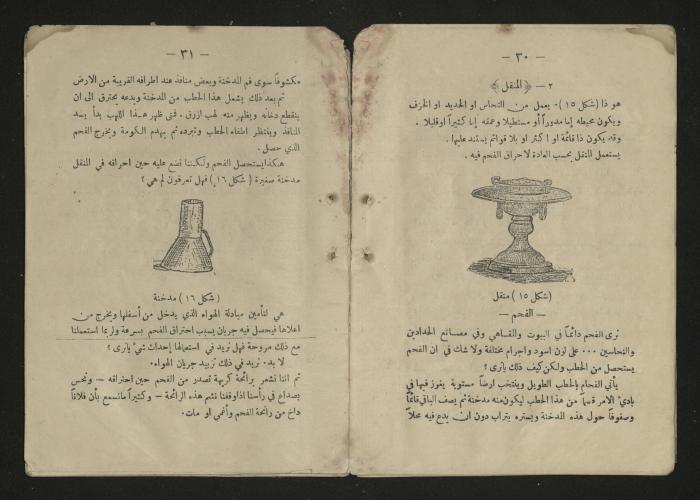 — ٣٠ —
٢ — ﴿ المنقل ﴾
هو ذا (شكل ١٥). يعمل من النحاس او الحديد او الخزف
ويكون محيطه إما مدوراً أو مستطيلا وعمقه إما كثيراً او قليلا .
وقد يكون ذا قائمة او اكثر او بلا قوائم يستند عليها .
يستعمل المنقل بحسب العادة لاحراق الفحم فيه .
(شكل ١٥) منقل
— الفحم —
نرى الفحم دائماً في البيوت والمقاهي وفي مصانع الحدادين
والنحاسين ... على لون اسود واجرام مختلفة ولا شك في ان الفحم
يستحصل من الحطب ولكن كيف ذلك ياترى ؟
يأتي الفحام بالحطب الطويل وينتخب ارضاً مستوية يغرز فيها في
بادئ الامر قسماً من هذا الحطب ليكون منه مدخنة ثم يصف الباقي قائماً
وصفوفاً حول هذه المدخنة ويستره بتراب دون ان يدع فيه محلاً
— ٣١ —
مكشوفاً سوى فم المدخنة وبعض منافذ عند اطرافه القريبة من الارض
ثم بعد ذلك يشعل هذا الحطب من المدخنة ويدعه يحترق الى ان
ينقطع دخانه ويظهر منه لهب ازرق . فمتى ظهر هذا اللهب بدأ يسد
المنافذ وينتظر اطفاء الحطب وتبرده ثم يهدم الكومة ويخرج الفحم
الذي حصل .
هكذا يستحصل الفحم ولكننا نضع عليه حين احراقه في المنقل
مدخنة صغيرة ( شكل ١٦ ) فهل تعرفون لم هي ؟
( شكل ١٦ ) مدخنة
هي لتأمين مبادلة الهواء الذي يدخل من أسفلها ويخرج من
اعلاها فيحصل فيه جريان يسبب احتراق الفحم بسرعة ولربما استعملنا
مع ذلك مروحة فهل نريد في استعمالها إحداث شيء ياترى ؟
لا بد . نريد في ذلك تزييد جريان الهواء .
ثم اننا نشعر برائحة كريهة تصدر من الفحم حين احتراقه — ونحس
بصداع في رأسنا اذا وقفنا نشم هذه الرائحة — وكثيراً ما نسمع بأن فلاناً
داخ من رائحة الفحم وأغمي او مات .